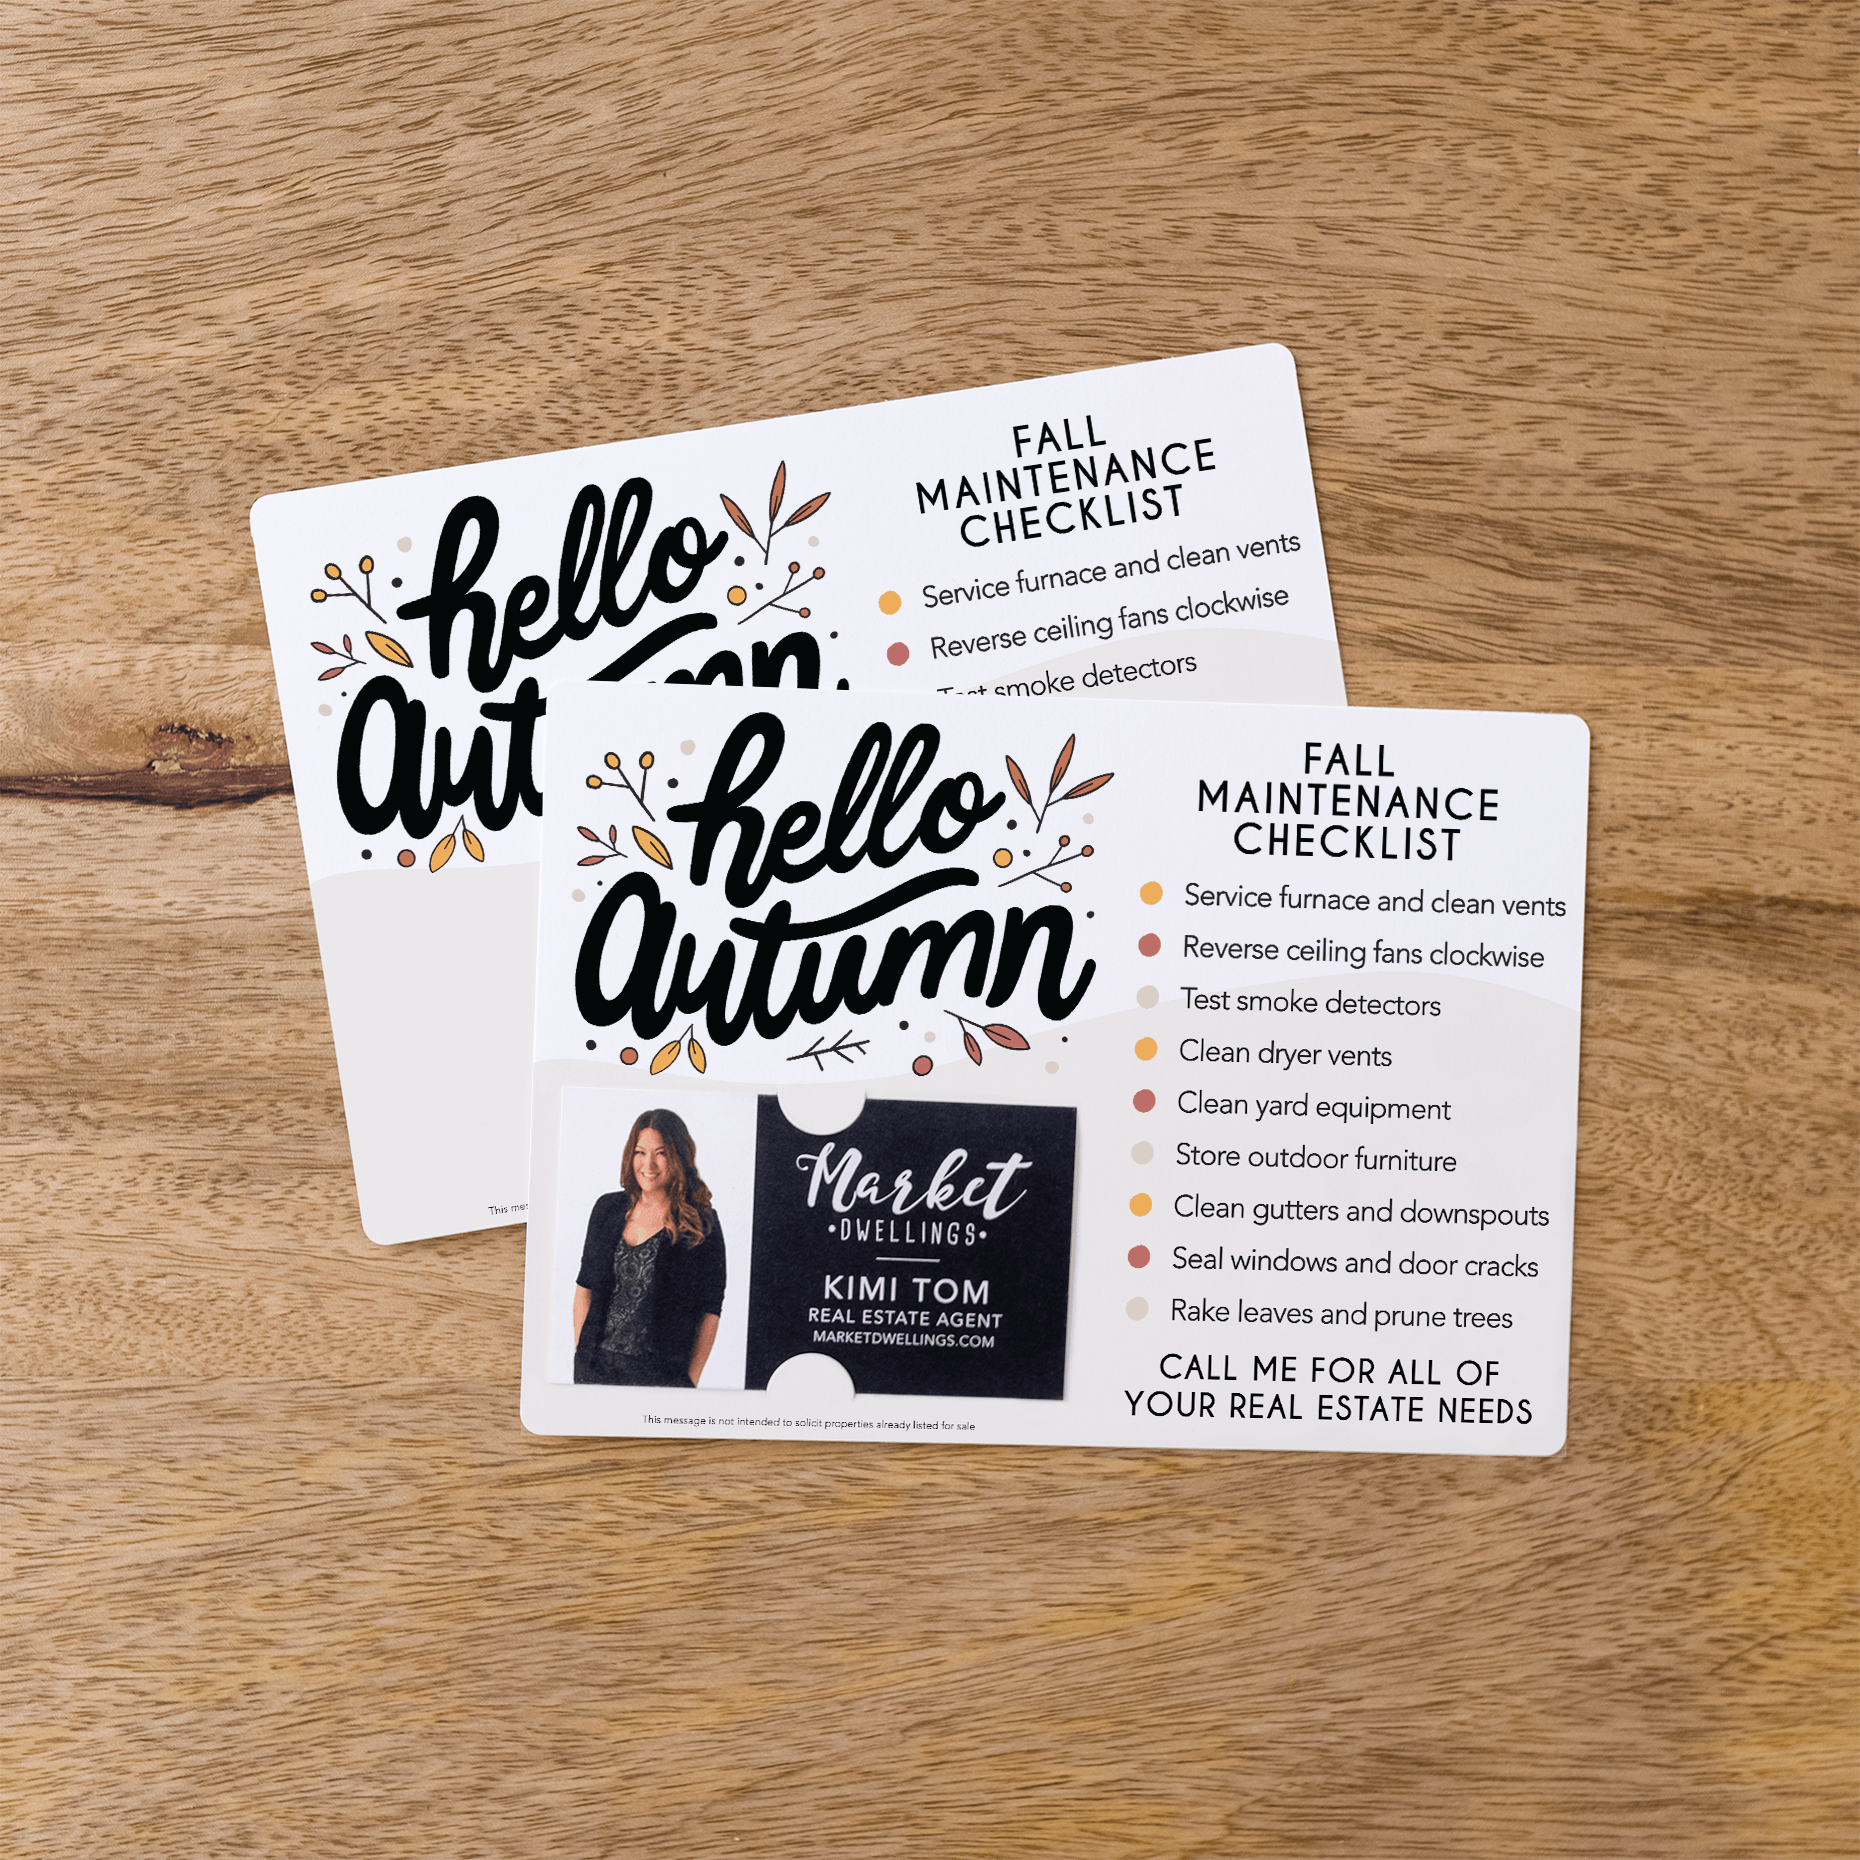 hello
FALL
MAINTENANCE
CHECKLIST
Service furnace and clean vents
Reverse ceiling fans clockwise
smoke detectors
This
hello
Autumn
FALL
MAINTENANCE
CHECKLIST
Service furnace and clean vents
Reverse ceiling fans clockwise
Test smoke detectors
Clean dryer vents
Clean yard equipment
Store outdoor furniture
Clean gutters and downspouts
Seal windows and door cracks
Rake leaves and prune trees
CALL ME FOR ALL OF
YOUR REAL ESTATE NEEDS
Market
•DWELLINGS•
KIMI TOM
REAL ESTATE AGENT
MARKETDWELLINGS.COM
This message is not intended to solicit properties already listed for sale